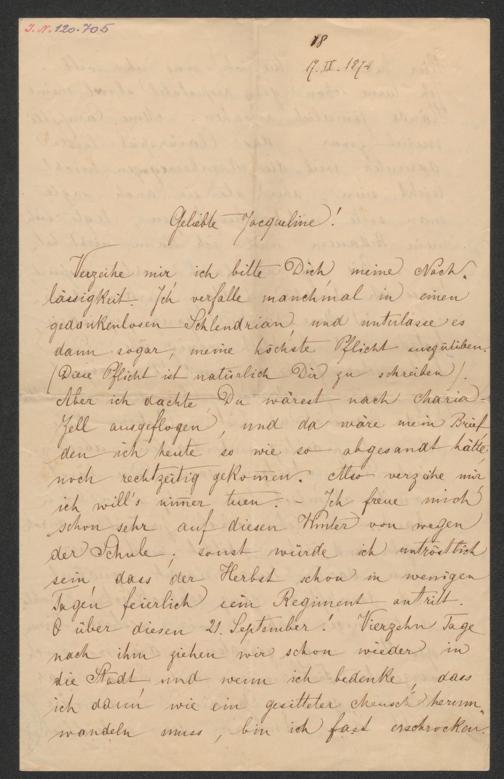 I.N. 120.705
18
17. IX. 1878
Geliebte Jacqueline!
Verzeihe mir ich bitte Dich, meine Nach-
lässigkeit. Ich verfalle manchmal in einen
gedankenlosen Schlendrian, und unterlasse es
dann sogar, meine höchste Pflicht auszuüben.
(Diese Pflicht ist natürlich Dir zu schreiben).
Aber ich dachte, Du wärest nach Maria-
Zell ausgeflogen, und da wäre mein Brief
den ich heute so wie so abgesandt hätte,
noch rechtzeitig gekommen. Also verzeihe mir,
ich will's nimer tuen. – Ich freue mich
schon sehr auf diesen Winter von wegen
der Schule; sonst würde ich untröstlich
sein, dass der Herbst schon in wenigen
Tagen feierlich sein Regiment antritt.
O über diesen 21. September! Vierzehn Tage
nach ihm ziehen wir schon wieder in
die Stadt und wenn ich bedenke, dass
ich dann wie ein gesitteter Mensch herum-
wandeln muss, bin ich fast erschrocken.